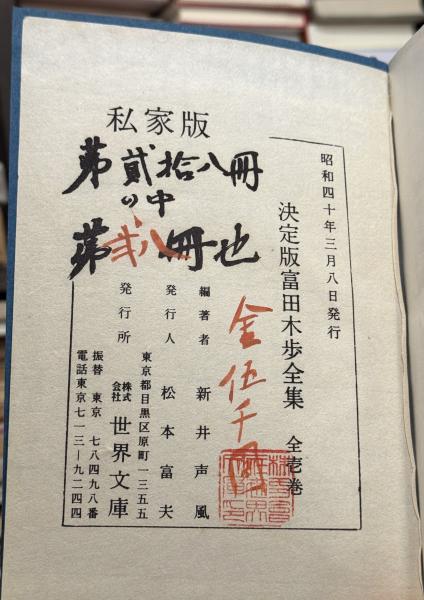 私家版
第貳拾八冊
の中
第弐八冊也
昭和四十年三月八日発行
決定版富田木歩全集 全壱巻
金伍千円
編著者 新井声風
発行人 松本富夫
東京都目黒区原町一三五五
発行所 株式会社 世界文庫
振替 東京 七八四九八番
電話東京七一三―九二四四